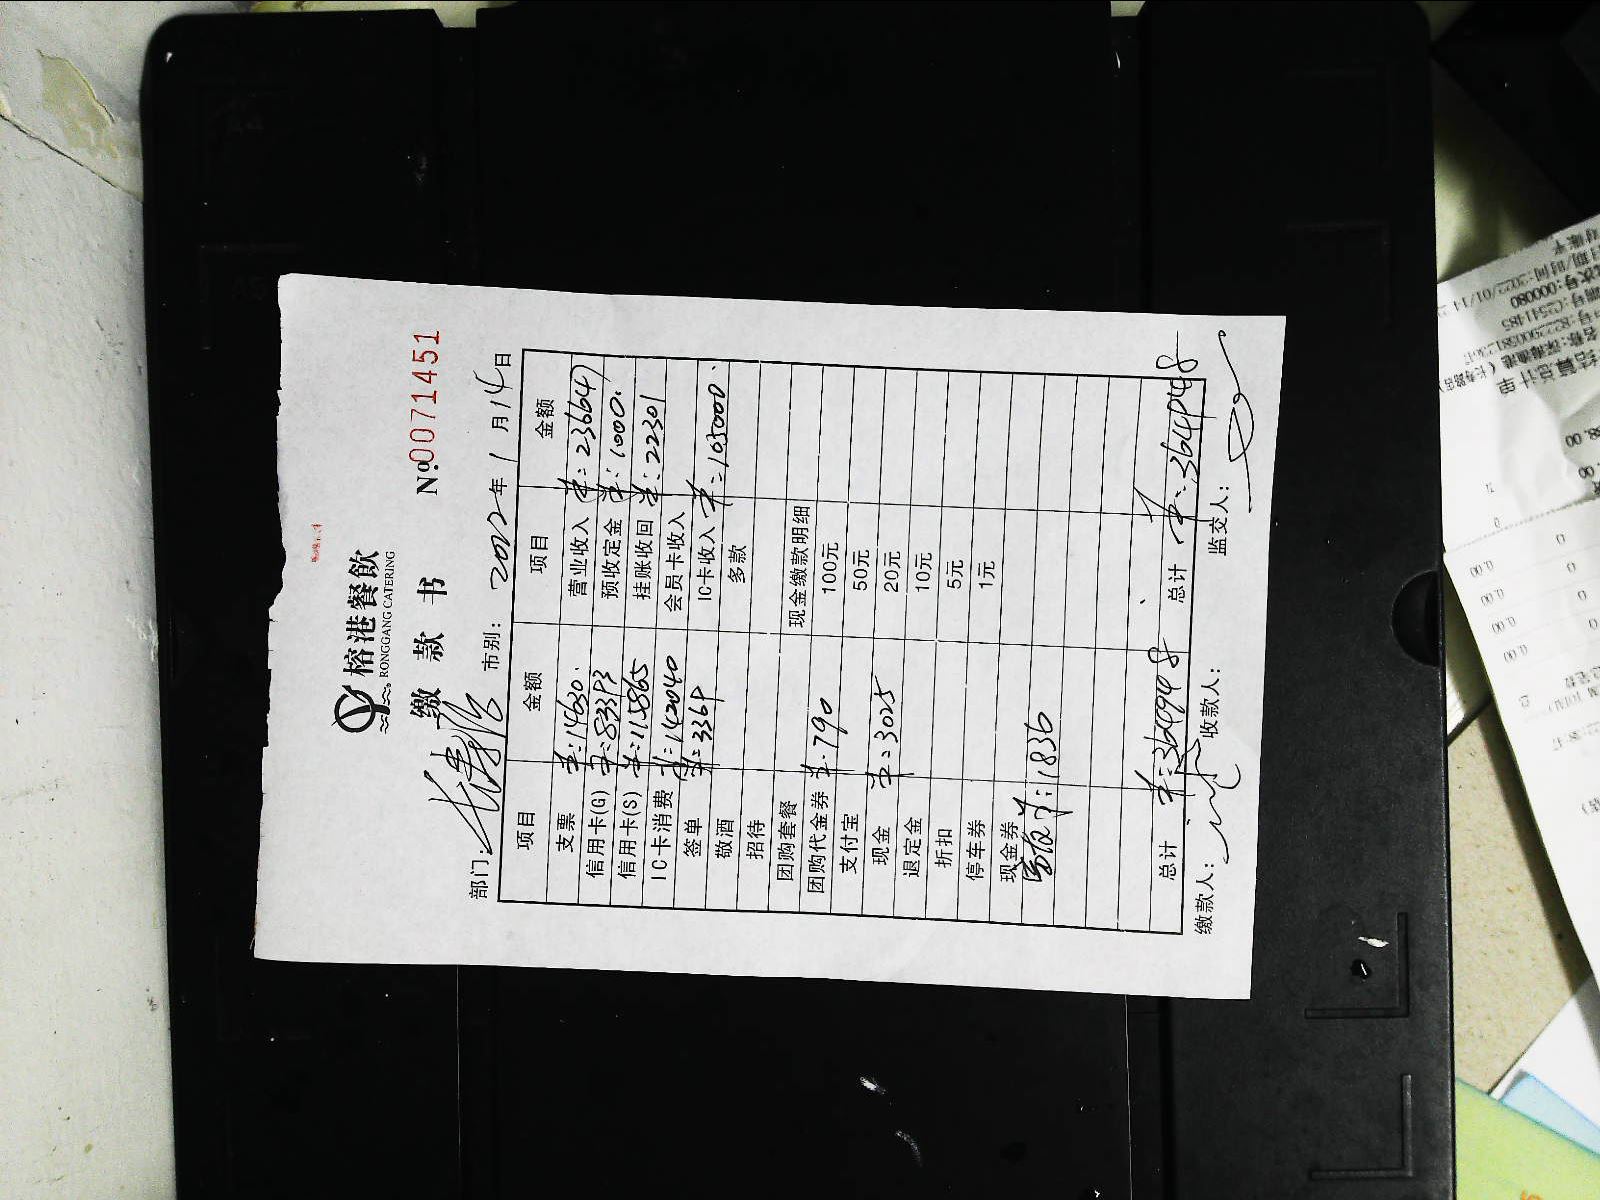 榕港餐飲
RONGGANG CATERING
缴 款 书 №0071451
部门 市别: 2022年 1 月 14 日
项目 金额 项目 金额
支票 ¥:14630. 营业收入 ¥:236647
信用卡(G) ¥:83393 预收定金 ¥:1000.
信用卡(S) ¥:115865 挂账收回 ¥:22301
IC卡消费 ¥:142040 会员卡收入
签单 ¥:3369 IC卡收入 ¥:105000.
敬酒 多款
招待
团购套餐 现金缴款明细
团购代金券 ¥:790 100元
支付宝 50元
现金 ¥:3025 20元
退定金 10元
折扣 5元
停车券 1元
现金券
¥:1836
总计 ¥:364948 总计 ¥:364948
缴款人: 收款人: 监交人:
结算总计单
批次号:000080
日期/时间:2022/01/14